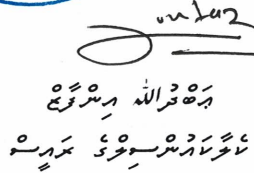 ޢަބްދުﷲ އިންފާޒް
ކެލާކައުންސިލްގެ ރައީސް